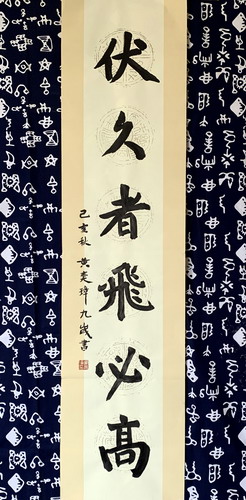 伏久者飛必高
己亥秋 黄奕璋九歲書